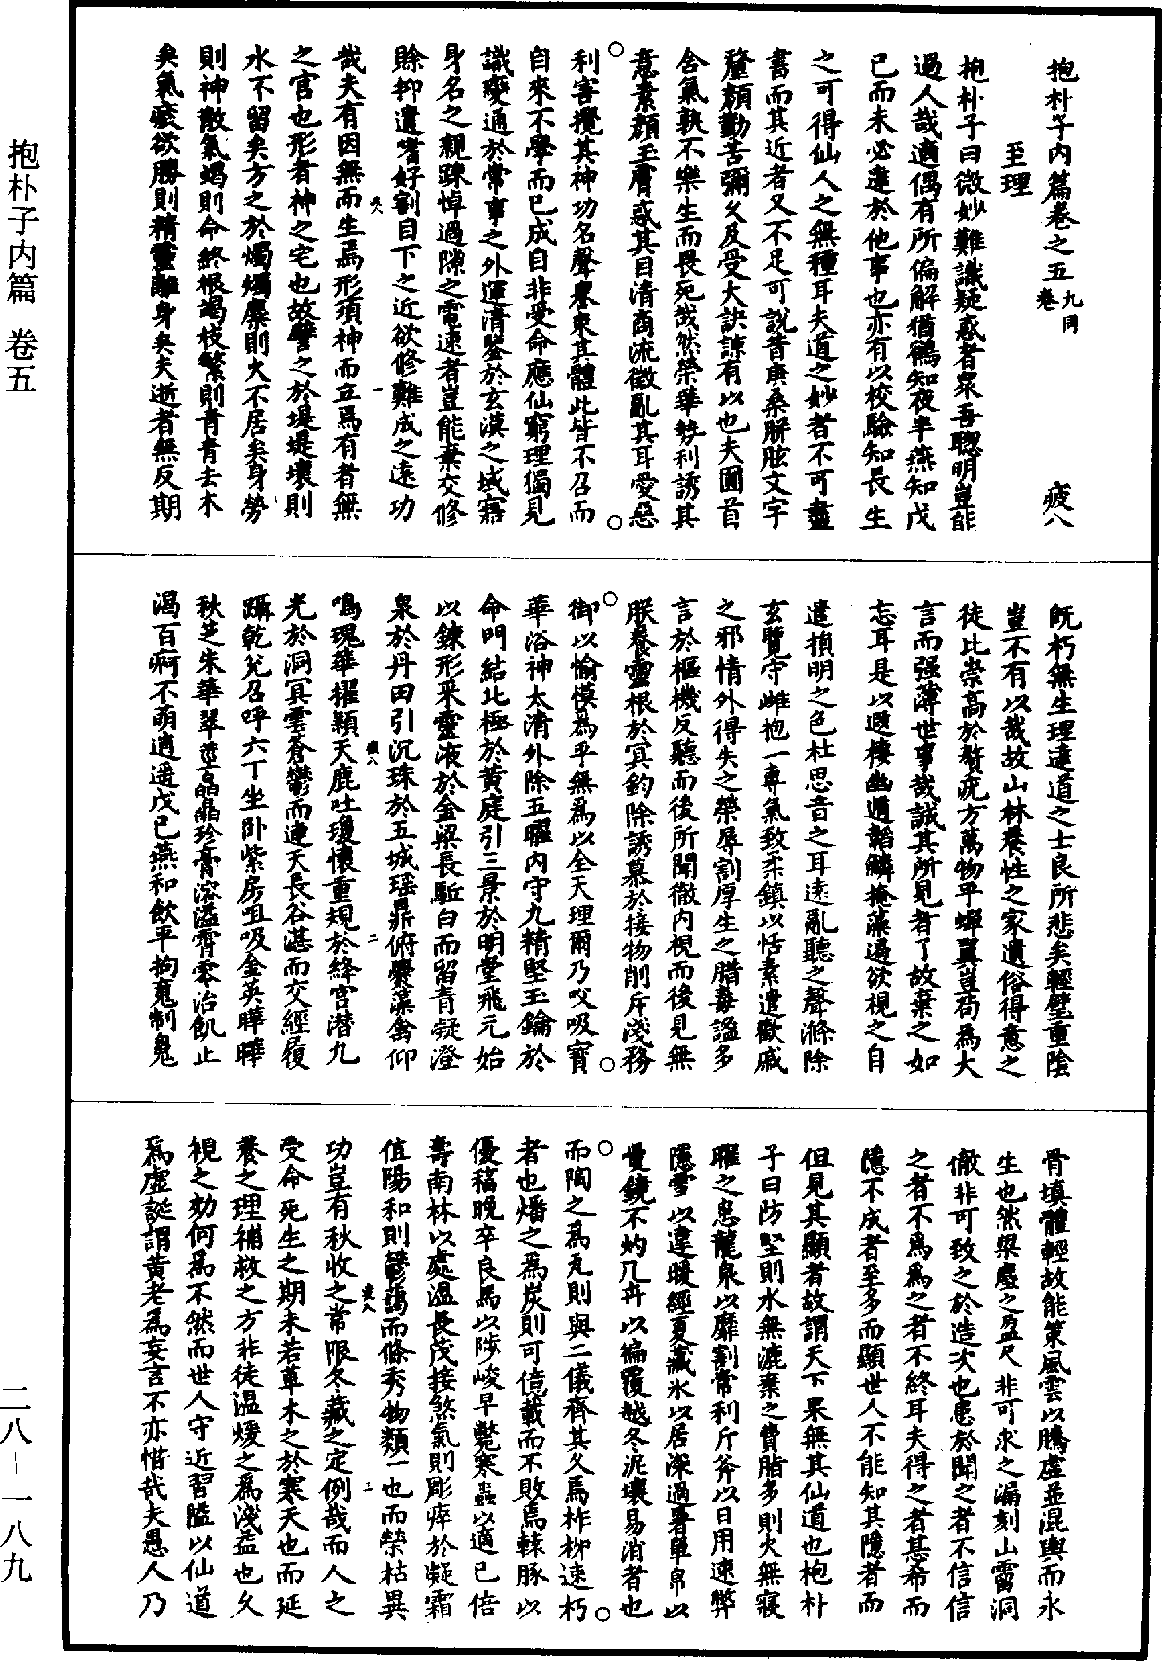 抱朴子内篇 卷五
抱朴子内篇卷之五 九同卷 疲八
至理
抱朴子曰微妙難識疑惑者衆吾聰明豈能
過人哉適偶有所偏解猶鶴知夜半燕知戊
已而未必達於他事也亦有以校驗知長生
之可得仙人之無種耳夫道之妙者不可盡
書而其近者又不足可說昔庚桑胼胝文字
釐顔勤苦彌久及受大訣諒有以也夫圓首
含氣孰不樂生而畏死哉然榮華勢利誘其
意素顔玉膚惑其目清商流徵亂其耳愛惡
利害攪其神功名聲譽束其體此皆不召而
自來不學而已成自非受命應仙窮理獨見
識變通於常事之外運清鑒於玄漠之域寤
身名之親踈悼過隙之電速者豈能棄交修
賒抑遺嗜好割目下之近欲修難成之遠功
疲八 一
哉夫有因無而生焉形須神而立焉有者無
之宮也形者神之宅也故譬之於堤堤壞則
水不留矣方之於燭燭糜則火不居矣身勞
則神散氣竭則命終根竭枝繁則青青去木
矣氣疲欲勝則精靈離身矣夫逝者無反期
既朽無生理達道之士良所悲矣輕璧重陰
豈不有以哉故山林養性之家遺俗得意之
徒比崇高於贅疣方萬物乎蟬翼豈苟為大
言而强薄世事哉誠其所見者了故棄之如
忘耳是以遐棲幽遁韜鱗掩藻遏欲視之目
遣損明之色杜思音之耳遠亂聽之聲滌除
玄覽守雌抱一專氣致柔鎮以恬素遣歡戚
之邪情外得失之榮辱割厚生之腊毒謐多
言於樞機反聽而後所聞徹内視而後見無
朕養靈根於冥鈞除誘慕於接物削斥淺務
御以愉慔為乎無為以全天理爾乃㕮吸寶
華浴神太清外除五曜内守九精堅玉鑰於
命門結北極於黄庭引三景於明堂飛元始
以鍊形采靈液於金梁長駈白而留青凝澄
泉於丹田引沉珠於五城瑶鼎俯爨藻禽仰
疲八 二
鳴瑰華擢穎天鹿吐瓊懷重規於絳宫潜九
光於洞冥雲蒼鬱而連天長谷湛而交經履
躡乾兑召呼六丁坐卧紫房咀吸金英曄曄
秋芝朱華翠莖皛皛珍膏溶溢霄零治飢止
渴百痾不萌逍遥戊巳燕和飲平拘魂制魄
骨填體輕故能策風雲以騰虚並混輿而永
生也然梁塵之盈尺非可求之漏刻山霤洞
徹非可致之於造次也患於聞之者不信信
之者不為為之者不終耳夫得之者甚希而
隱不成者至多而顯世人不能知其隱者而
但見其顯者故謂天下果無其仙道也抱朴
子曰防堅則水無漉棄之費脂多則火無寢
曜之患龍泉以靡割常利斤斧以日用速弊
隱雪以違暖經夏藏氷以居深過暑單帛以
曼鏡不灼凡卉以偏覆越冬泥壤易消者也
而陶之為瓦則與二儀齊其久焉柞柳速朽
者也燔之為炭則可億載而不敗焉轅豚以
優稿晚卒良馬以陟峻早斃寒蟲以適已倍
壽南林以處温長茂接煞氣則彫瘁於凝霜
值陽和則鬱藹而條秀物類一也而榮枯異
疲八 三
功豈有秋收之常限冬藏之定例哉而人之
受命死生之期未若草木之於寒天也而延
養之理補救之方非徒温煖之為淺益也久
視之効何為不然而世人守近習隘以仙道
為虚誕謂黄老為妄言不亦惜哉夫愚人乃
二八–一八九